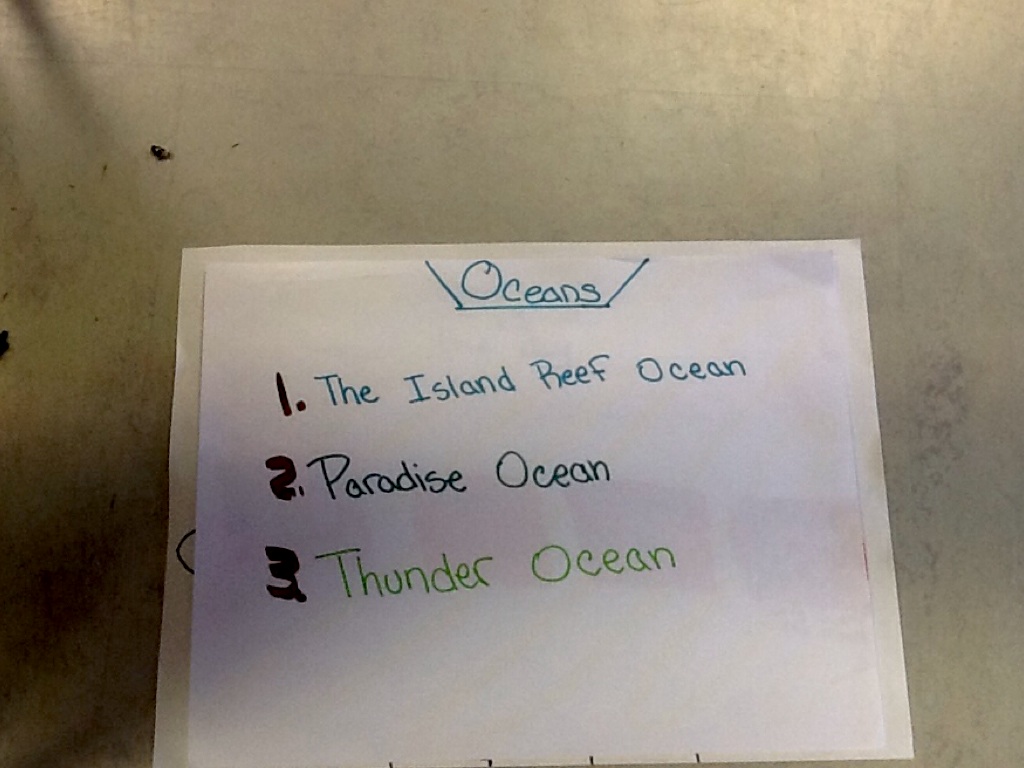 Oceans
1. The Island Reef Ocean
2. Paradise Ocean
3 Thunder Ocean